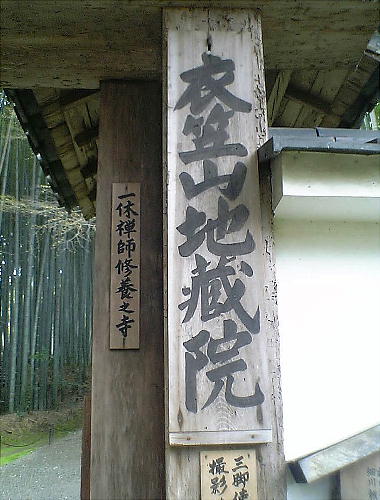 衣笠山地藏院
一休禅師修養之寺
三脚使
撮影
細川